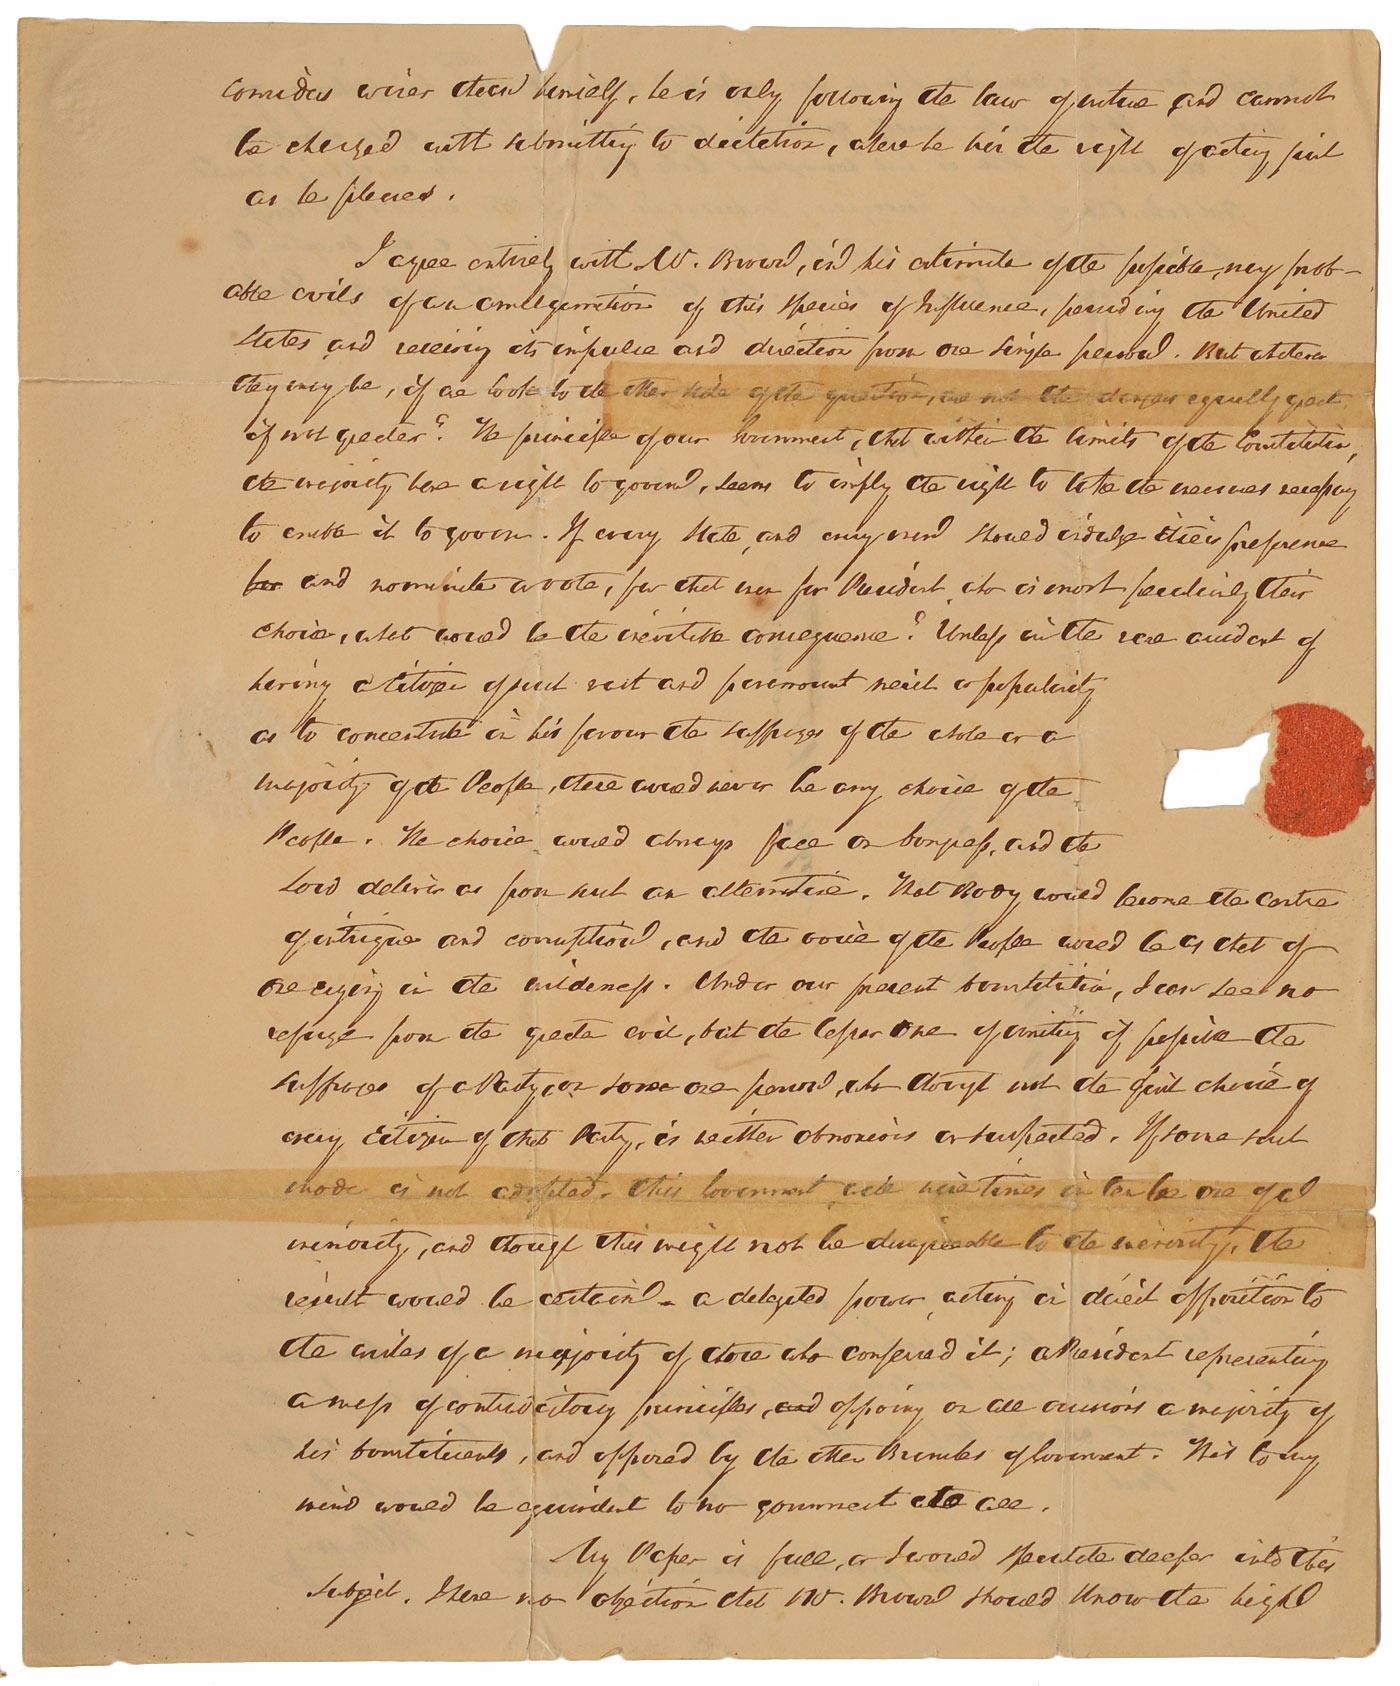 considers wiser than himself, he is only following the law of nature and cannot
be charged with submitting to dictation, where he has the right of acting just
as he pleases.
I agree entirely with Mr. Brown, in his estimate of the possible, nay prob-
able evils of an amalgamation of this species of Influence, pervading the United
States and receiving its impulse and direction from one single person. But whatever
they may be, if we look to the other side of the question, are not the dangers equally great
if not greater? The principle of our Government, that within the limits of the Constitution,
the majority have a right to govern, seems to imply the right to take the measures necessary
to enable it to govern. If every State, and every man should indulge their preference
for and nominate or vote, for that man for President who is most peculiarly their
choice, what would be the inevitable consequence? Unless in the rare accident of
having a Citizen of such vast and paramount merit or popularity
as to concentrate in his favour the suffrages of the whole or a
majority of the People, there would never be any choice of the
People. The choice would always fall on Congress, and the
Lord deliver us from such an alternative. That Body would become the Centre
of intrigue and corruption, and the voice of the People would be as that of
one crying in the wilderness. Under our present Constitution, I can see no
refuge from the greater evil, but the lesser one of uniting if possible the
suffrages of a Party, on some one person, who though not the first choice of
every Citizen of that Party, is neither obnoxious or suspected. If some such
mode is not adopted, this Government will nine times in ten be one of a
minority, and though this might not be disagreeable to the minority, the
result would be certain - a delegated power, acting in direct opposition to
the wishes of a majority of those who conferred it; a President representing
a mess of contradictory principles, and opposing on all occasions a majority of
his Constituents, and opposed by the other Branches of Government. This to my
mind would be equivalent to no government at all.
My Paper is full, or I would speculate deeper into this
subject. I have no objection that Mr. Brown should know the high